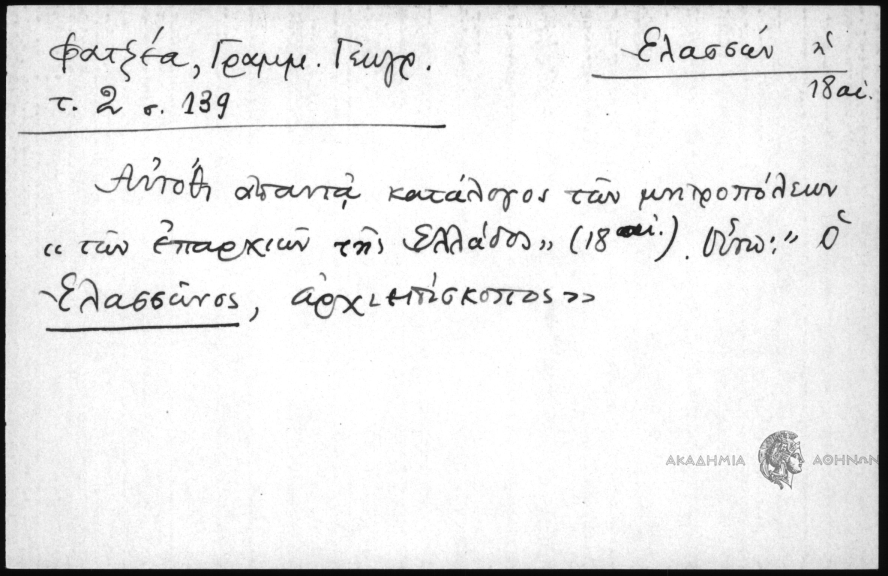 Φατζέα, Γραμμ. Γεωγρ.
τ. 2 σ. 139
Ελασσών
18 αι.
Αὐτόθι ἀπαντᾷ κατάλογος τῶν μητροπόλεων
«τῶν ἐπαρχιῶν τῆς Ἑλλάδος» (18 αι.). Οὕτω: "ὁ
Ἐλασσῶνος, ἀρχιεπίσκοπος»
ΑΚΑΔΗΜΙΑ ΑΘΗΝΩΝ